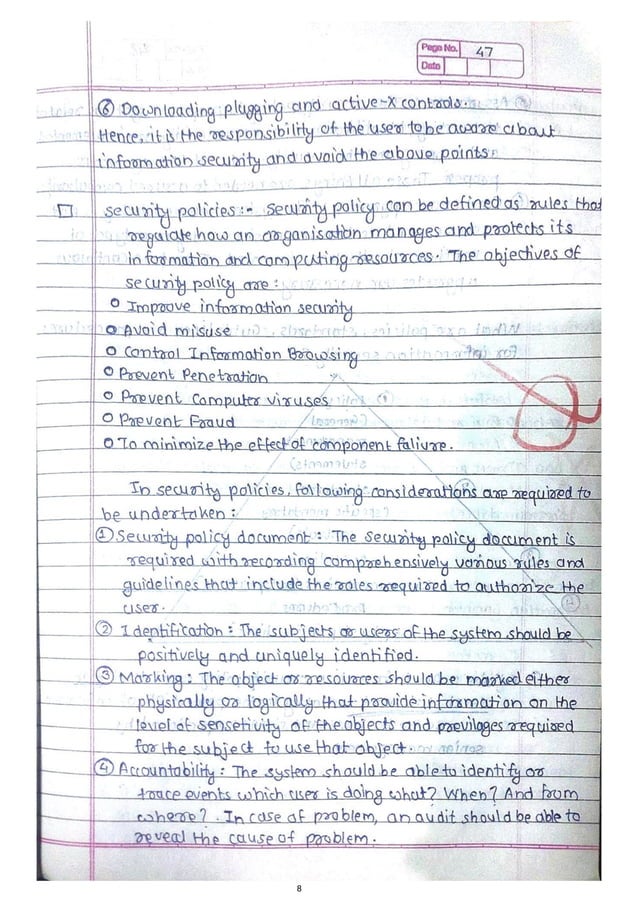 Page No. 47
Date
⑥ Downloading plugging and active-X controls.
Hence, it is the responsibility of the user to be aware about
information security and avoid the above points.
□ security policies :- Security policy can be defined as rules that
regulate how an organisation manages and protects its
information and computing resources. The objectives of
security policy are :
o Improve information security
o Avoid misuse
o Control Information Browsing
o Prevent Penetration
o Prevent Computer viruses
o Prevent Fraud
o To minimize the effect of component faliure.
In security policies, following considerations are required to
be undertaken :
① Security policy document : The security policy document is
required with recording comprehensively various rules and
guidelines that include the roles required to authorize the
user.
② Identification : The subjects or users of the system should be
positively and uniquely identified.
③ Marking : The object or resources should be marked either
physically or logically that provide information on the
level of sensetivity of the objects and previlages required
for the subject to use that object.
④ Accountability : The system should be able to identify or
trace events which user is doing what? When? And from
where? . In case of problem, an audit should be able to
reveal the cause of problem.
8